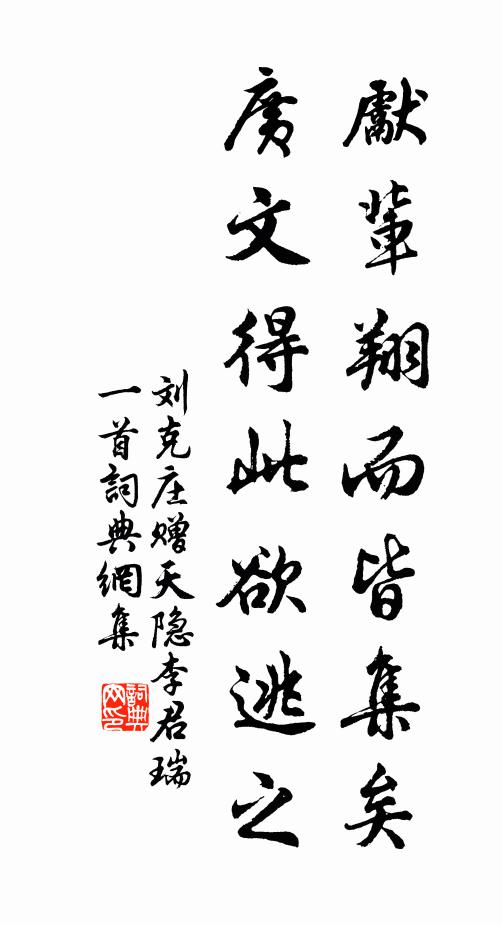 獻輩翔而皆集矣
廣文得此欲逃之
刘克庄赠天隐李君瑞
一首詞典網集
詞典
网印